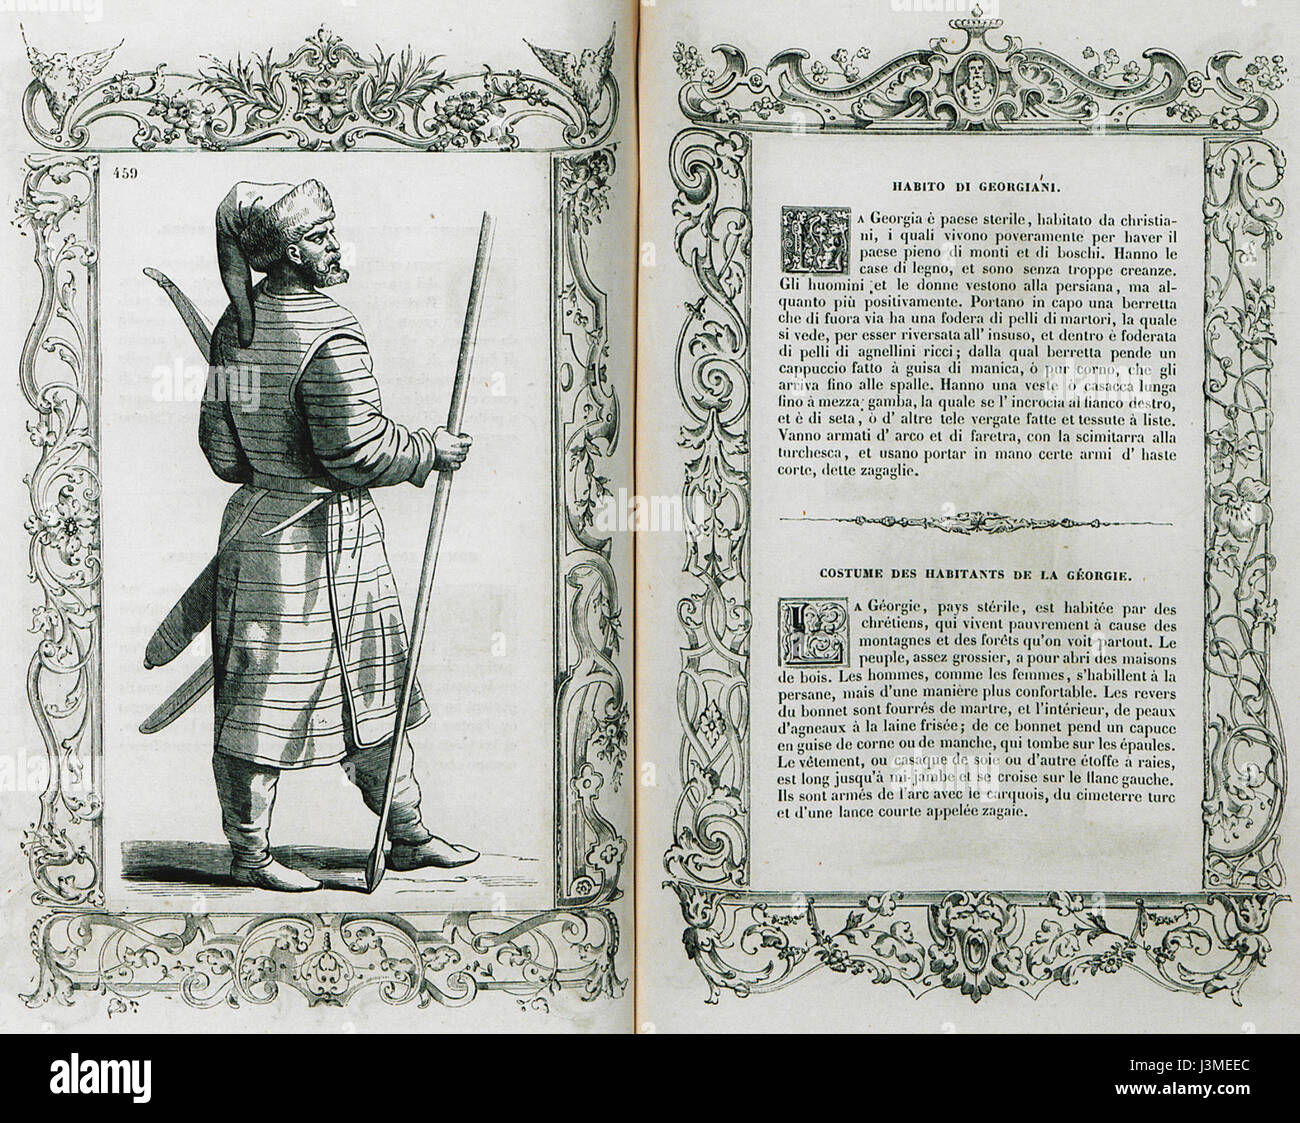 459
HABITO DI GEORGIANI.
LA Georgia è paese sterile, habitato da christia-
ni, i quali vivono poveramente per haver il
paese pieno di monti et di boschi. Hanno le
case di legno, et sono senza troppe creanze.
Gli huomini et le donne vestono alla persiana, ma al-
quanto più positivamente. Portano in capo una berretta
che di fuora via ha una fodera di pelli di martori, la quale
si vede, per esser riversata all' insuso, et dentro è foderata
di pelli di agnellini ricci; dalla qual berretta pende un
cappuccio fatto à guisa di manica, ò pur corno, che gli
arriva fino alle spalle. Hanno una veste ò casacca lunga
fino à mezza gamba, la quale se l' incrocia al fianco destro,
et è di seta, ò d' altre tele vergate fatte et tessute à liste.
Vanno armati d' arco et di faretra, con la scimitarra alla
turchesca, et usano portar in mano certe armi d' haste
corte, dette zagaglie.
COSTUME DES HABITANTS DE LA GÉORGIE.
LA Géorgie, pays stérile, est habitée par des
chrétiens, qui vivent pauvrement à cause des
montagnes et des forêts qu'on voit partout. Le
peuple, assez grossier, a pour abri des maisons
de bois. Les hommes, comme les femmes, s'habillent à la
persane, mais d'une manière plus confortable. Les revers
du bonnet sont fourrés de martre, et l'intérieur, de peaux
d'agneaux à la laine frisée; de ce bonnet pend un capuce
en guise de corne ou de manche, qui tombe sur les épaules.
Le vêtement, ou casaque de soie ou d'autre étoffe à raies,
est long jusqu'à mi-jambe et se croise sur le flanc gauche.
Ils sont armés de l'arc avec le carquois, du cimeterre turc
et d'une lance courte appelée zagaie.
alamy
Image ID: J3MEEC
www.alamy.com